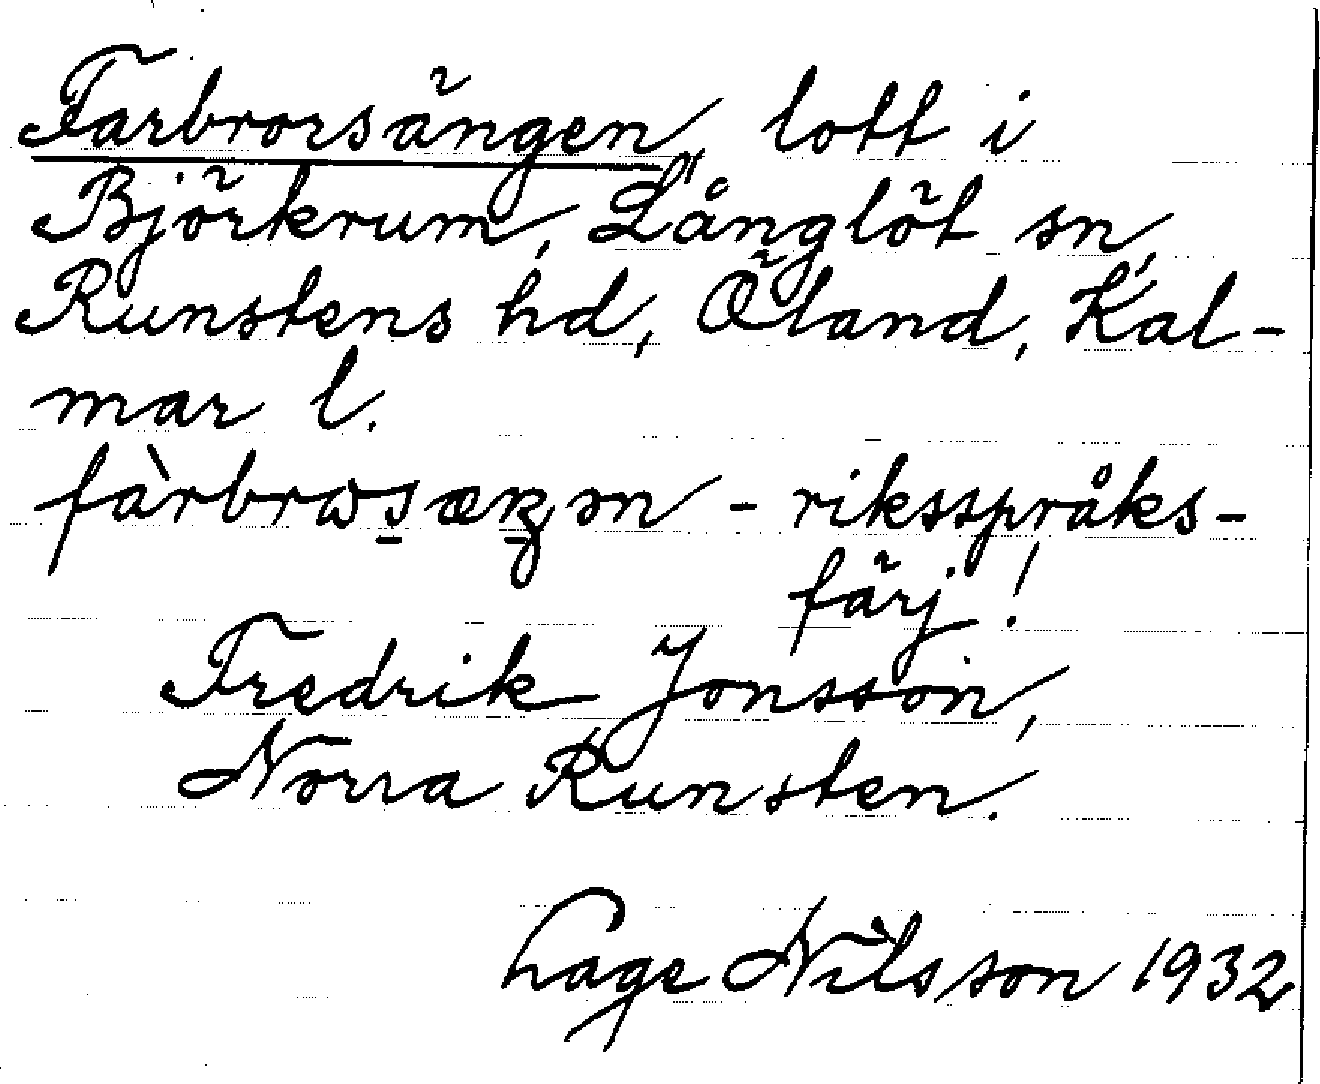 Farbrorsängen, lott i
Björkrum, Långlöt sn,
Runstens hd, Öland, Kal-
mar l.
- riksspråks-
färj!
Fredrik Jonsson,
Norra Runsten.
Hage Nilsson 1932